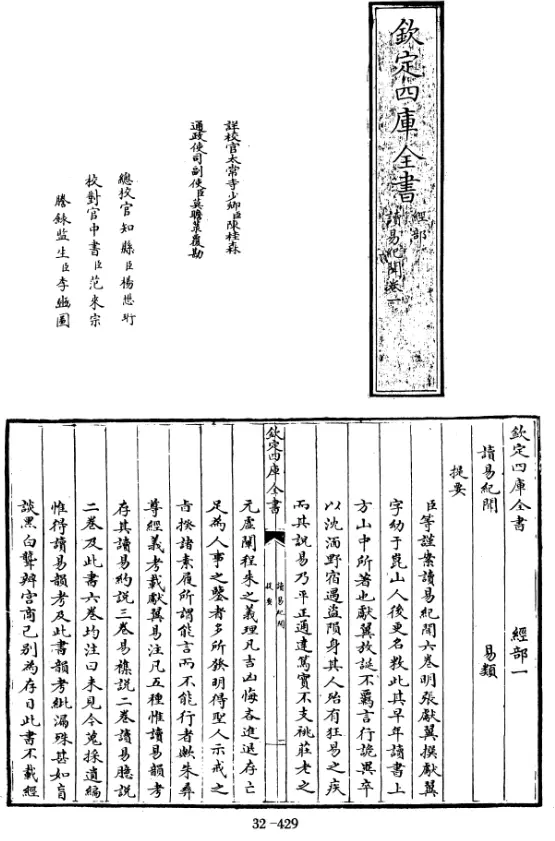 欽定四庫全書
經部
讀易紀聞卷一
詳校官太常寺少卿臣陳桂森
通政使司副使臣莫瞻菉覆勘
總校官知縣臣楊懋珩
校對官中書臣范來宗
謄錄監生臣李幽圃
欽定四庫全書 經部一
讀易紀聞 易類
提要
臣等謹案讀易紀聞六卷明張獻翼撰獻翼
字幼于崑山人後更名敉此其早年讀書上
方山中所著也獻翼放誕不羈言行詭異卒
以沈湎野宿遇盜隕身其人殆有狂易之疾
而其說易乃平正通達篤實不支祧莊老之
欽定四庫全書
讀易紀聞
提要
二
元虛闡程朱之義理凡吉凶悔吝進退存亡
足為人事之鑒者多所發明得聖人示戒之
㫖揆諸素履所謂能言而不能行者歟朱彝
尊經義考載獻翼易注凡五種惟讀易韻考
存其讀易約說三卷易雜說二卷讀易臆說
二卷及此書六卷均注曰未見今蒐採遺編
惟得讀易韻考及此書韻考紕漏殊甚如盲
談黑白聾辨宫商已别為存目此書不載經
32-429